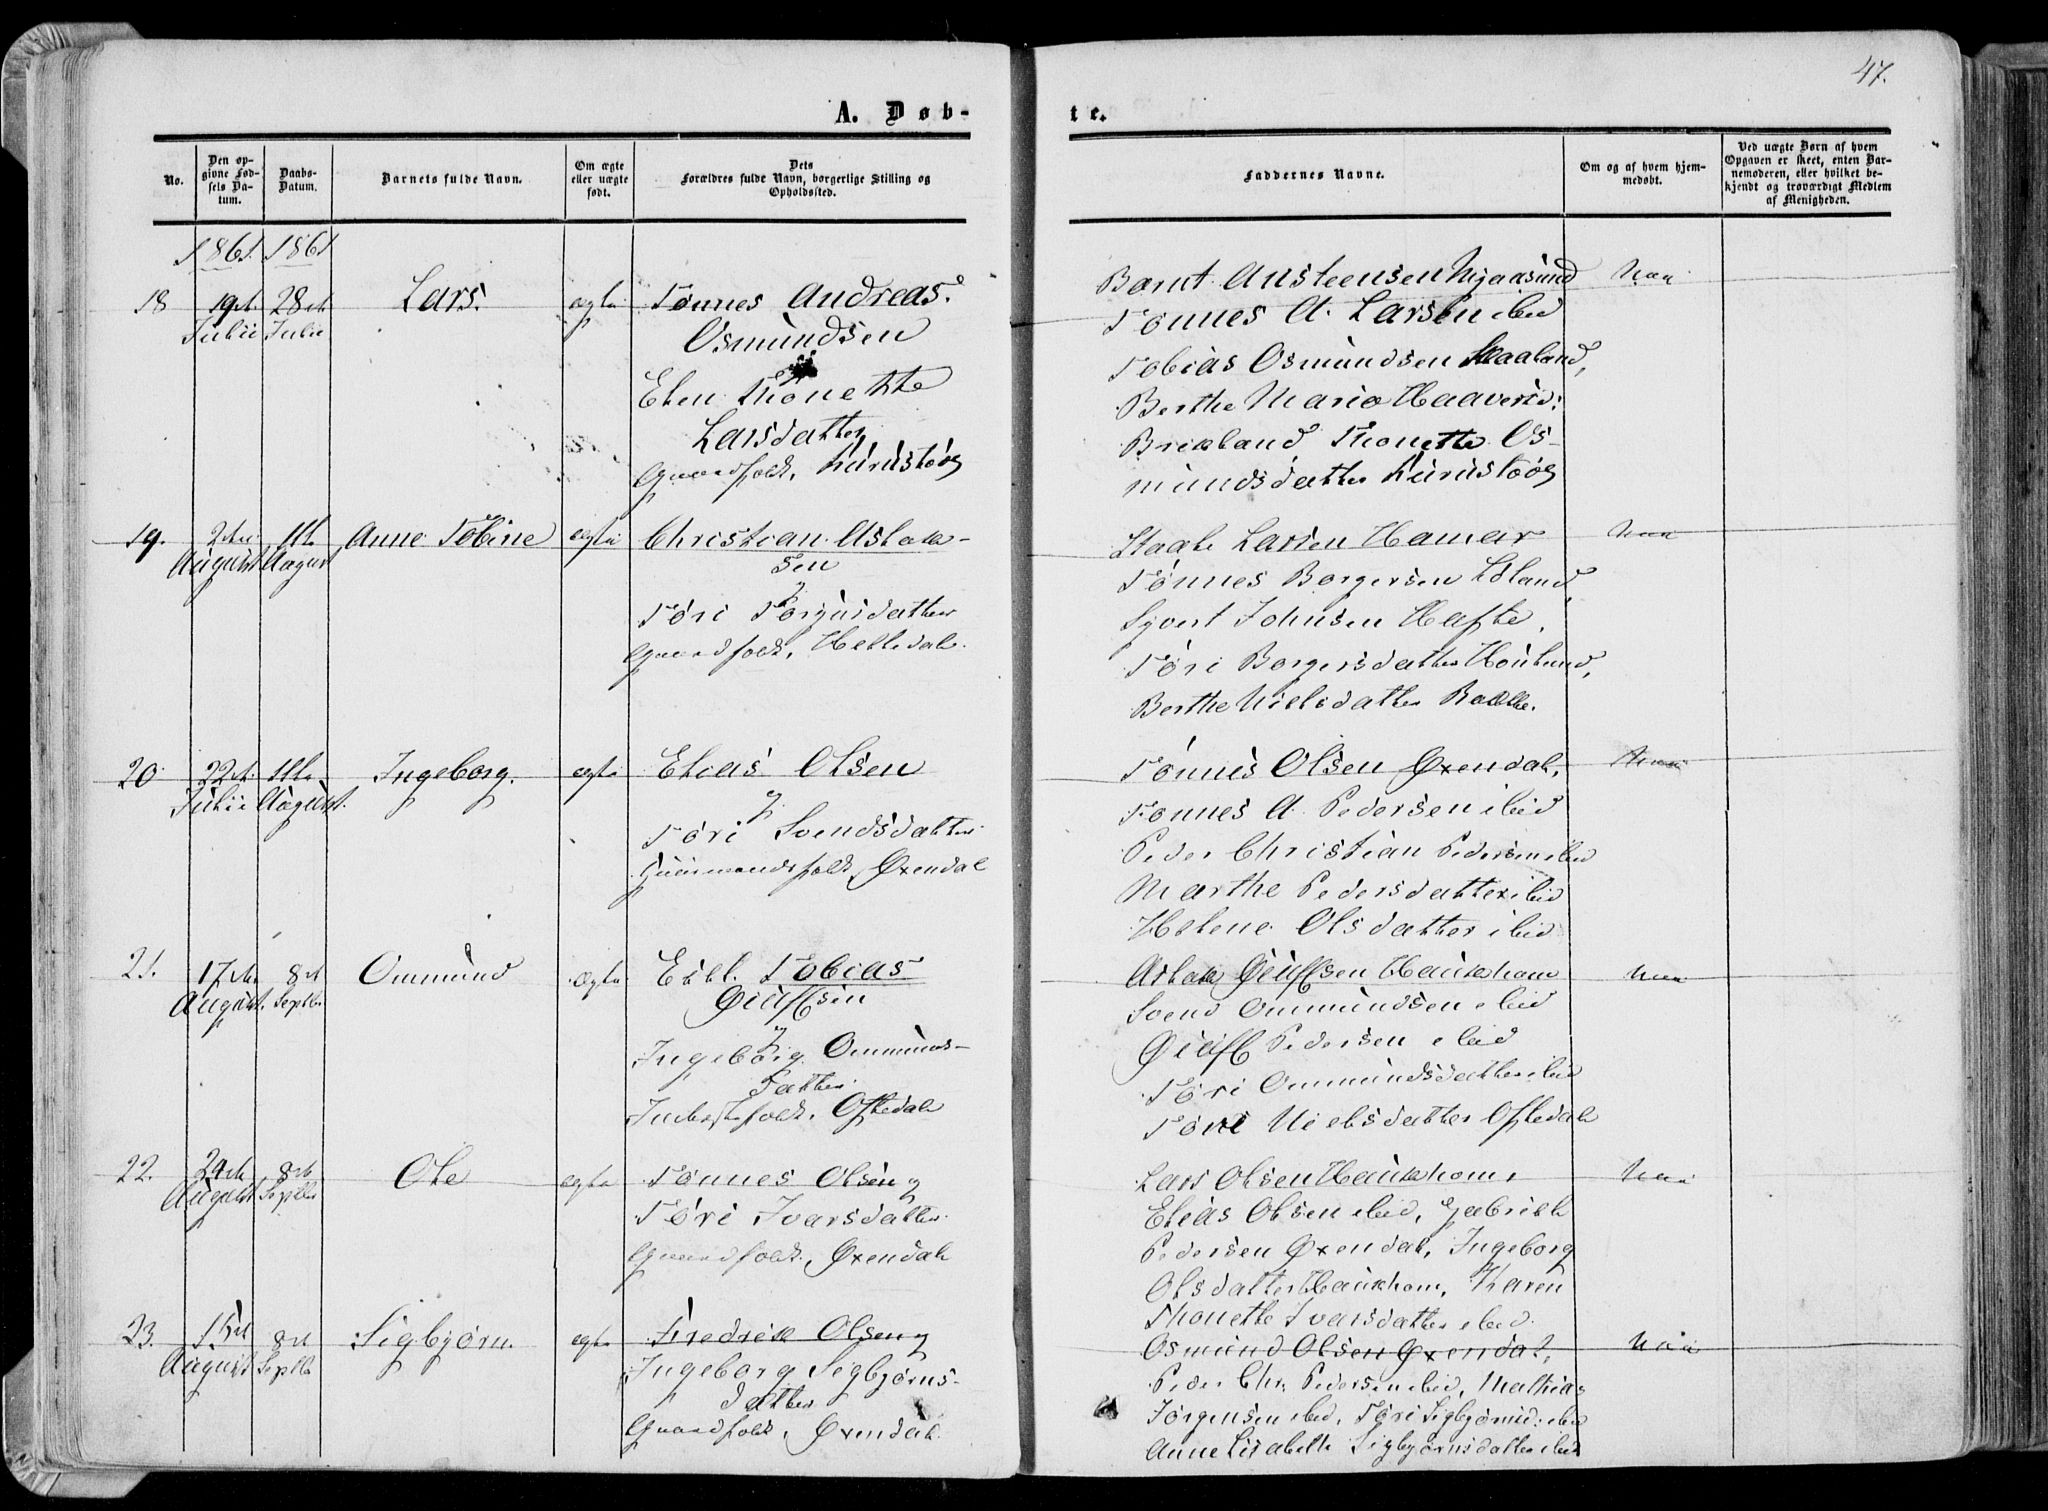 47.
A. Døb-
te.
No.
Den op-
givne Fød-
sels Da-
tum.
Daabs-
Datum.
Barnets fulde Navn.
Om ægte
eller uægte
født.
Dets
Forældres fulde Navn, borgerlige Stilling og
Opholdssted.
Faddernes Navne.
Om og af hvem hjem-
medøbt.
Ved uægte Børn af hvem
Opgaven er skeet, enten Bar-
nemoderen, eller hvilket be-
kjendt og troværdigt Medlem
af Menigheden.
1861. 1861
18
19de
Julii
28de
Julii
Lars.
ægte
Tønnes Andreas
Osmundsen
Elen Thonette
Larsdatter
Gaardfolk,
Bernt Ansteensen
Tønnes A. Larsen ibid
Tobias Osmundsen
Berthe Maria Haaversd:
Thonette Os-
mundsdatter
Nei
19.
2den
August
11te
August
Anne Tobine
ægte
Christian Aslak-
sen
og
Tøri Torgersdatter
Gaardfolk, Helledal.
Staale Larsen Hamar
Tønnes Borgersen Eland,
Syvert Johnsen Hafte,
Tøri Borgersdatter
Berthe Nielsdatter Bakke.
Nei
20.
22de
Julii
11te
August.
Ingeborg.
ægte
Elias Olsen
og
Tøri Svendsdatter
Huusmandsfolk, Øxendal
Tønnes Olsen Øxendal,
Tønnes A. Pedersen ibid
Peder Christian Pedersen ibid
Marthe Pedersdatter ibid
Helene Olsdatter ibid
Nei
21.
17de
August.
8de
Septbr
Ommund
ægte
Eill. Tobias
Øiulfsen
og
Ingeborg Ommunds-
datter
Inderstfolk, Oftedal
Aslak Øiulfsen Haukhom
Svend Ommundsen ibid
Øiulf Pedersen ibid
Tøri Ommundsdatter ibid
Tøri Nielsdatter Oftedal
Nei
22.
24de
August
8de
Septbr
Ole
ægte
Tønnes Olsen og
Tøri Ivarsdatter
Gaardfolk, Øxendal
Lars Olsen Haukhom,
Elias Olsen ibid, Gabriel
Pedersen Øxendal, Ingeborg
Olsdatter Haukhom, Karen
Thonette Ivarsdatter ibid.
Nei
23.
15de
August
8de
Septbr
Sigbjørn.
ægte
Fredrik Olsen og
Ingeborg Segbjørns-
datter
Gaardfolk, Øxendal.
Osmund Olsen Øxendal,
Peder Chr. Pedersen ibid, Mathias
Jørgensen ibid, Tøri Sigbjørnsd: ibid
Anne Lisabeth Sigbjørnsdatter ibid
Nei